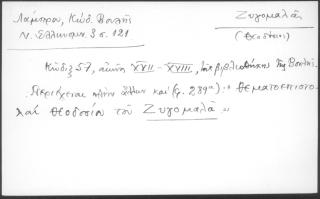 Λάμπρου, Κώδ. Βουλῆς
Ζυγομαλᾶ
Ν. Ἑλληνομν. 3 σ. 121
(Θεοδόσιος)
Κῶδιξ 57, αἰῶνος XVII - XVIII, τῆς βιβλιοθήκης τῆς Βουλῆς.
Περιέχεται πλὴν ἄλλων καὶ (φ. 289α) « Θεματοεπιστο-
λαὶ Θεοδοσίου τοῦ Ζυγομαλᾶ »